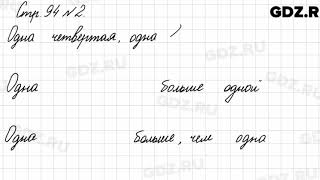 GDZ.RU
Стр. 94 №2.
Одна четвертая, одна
Одна больше одной
Одна больше, чем одна